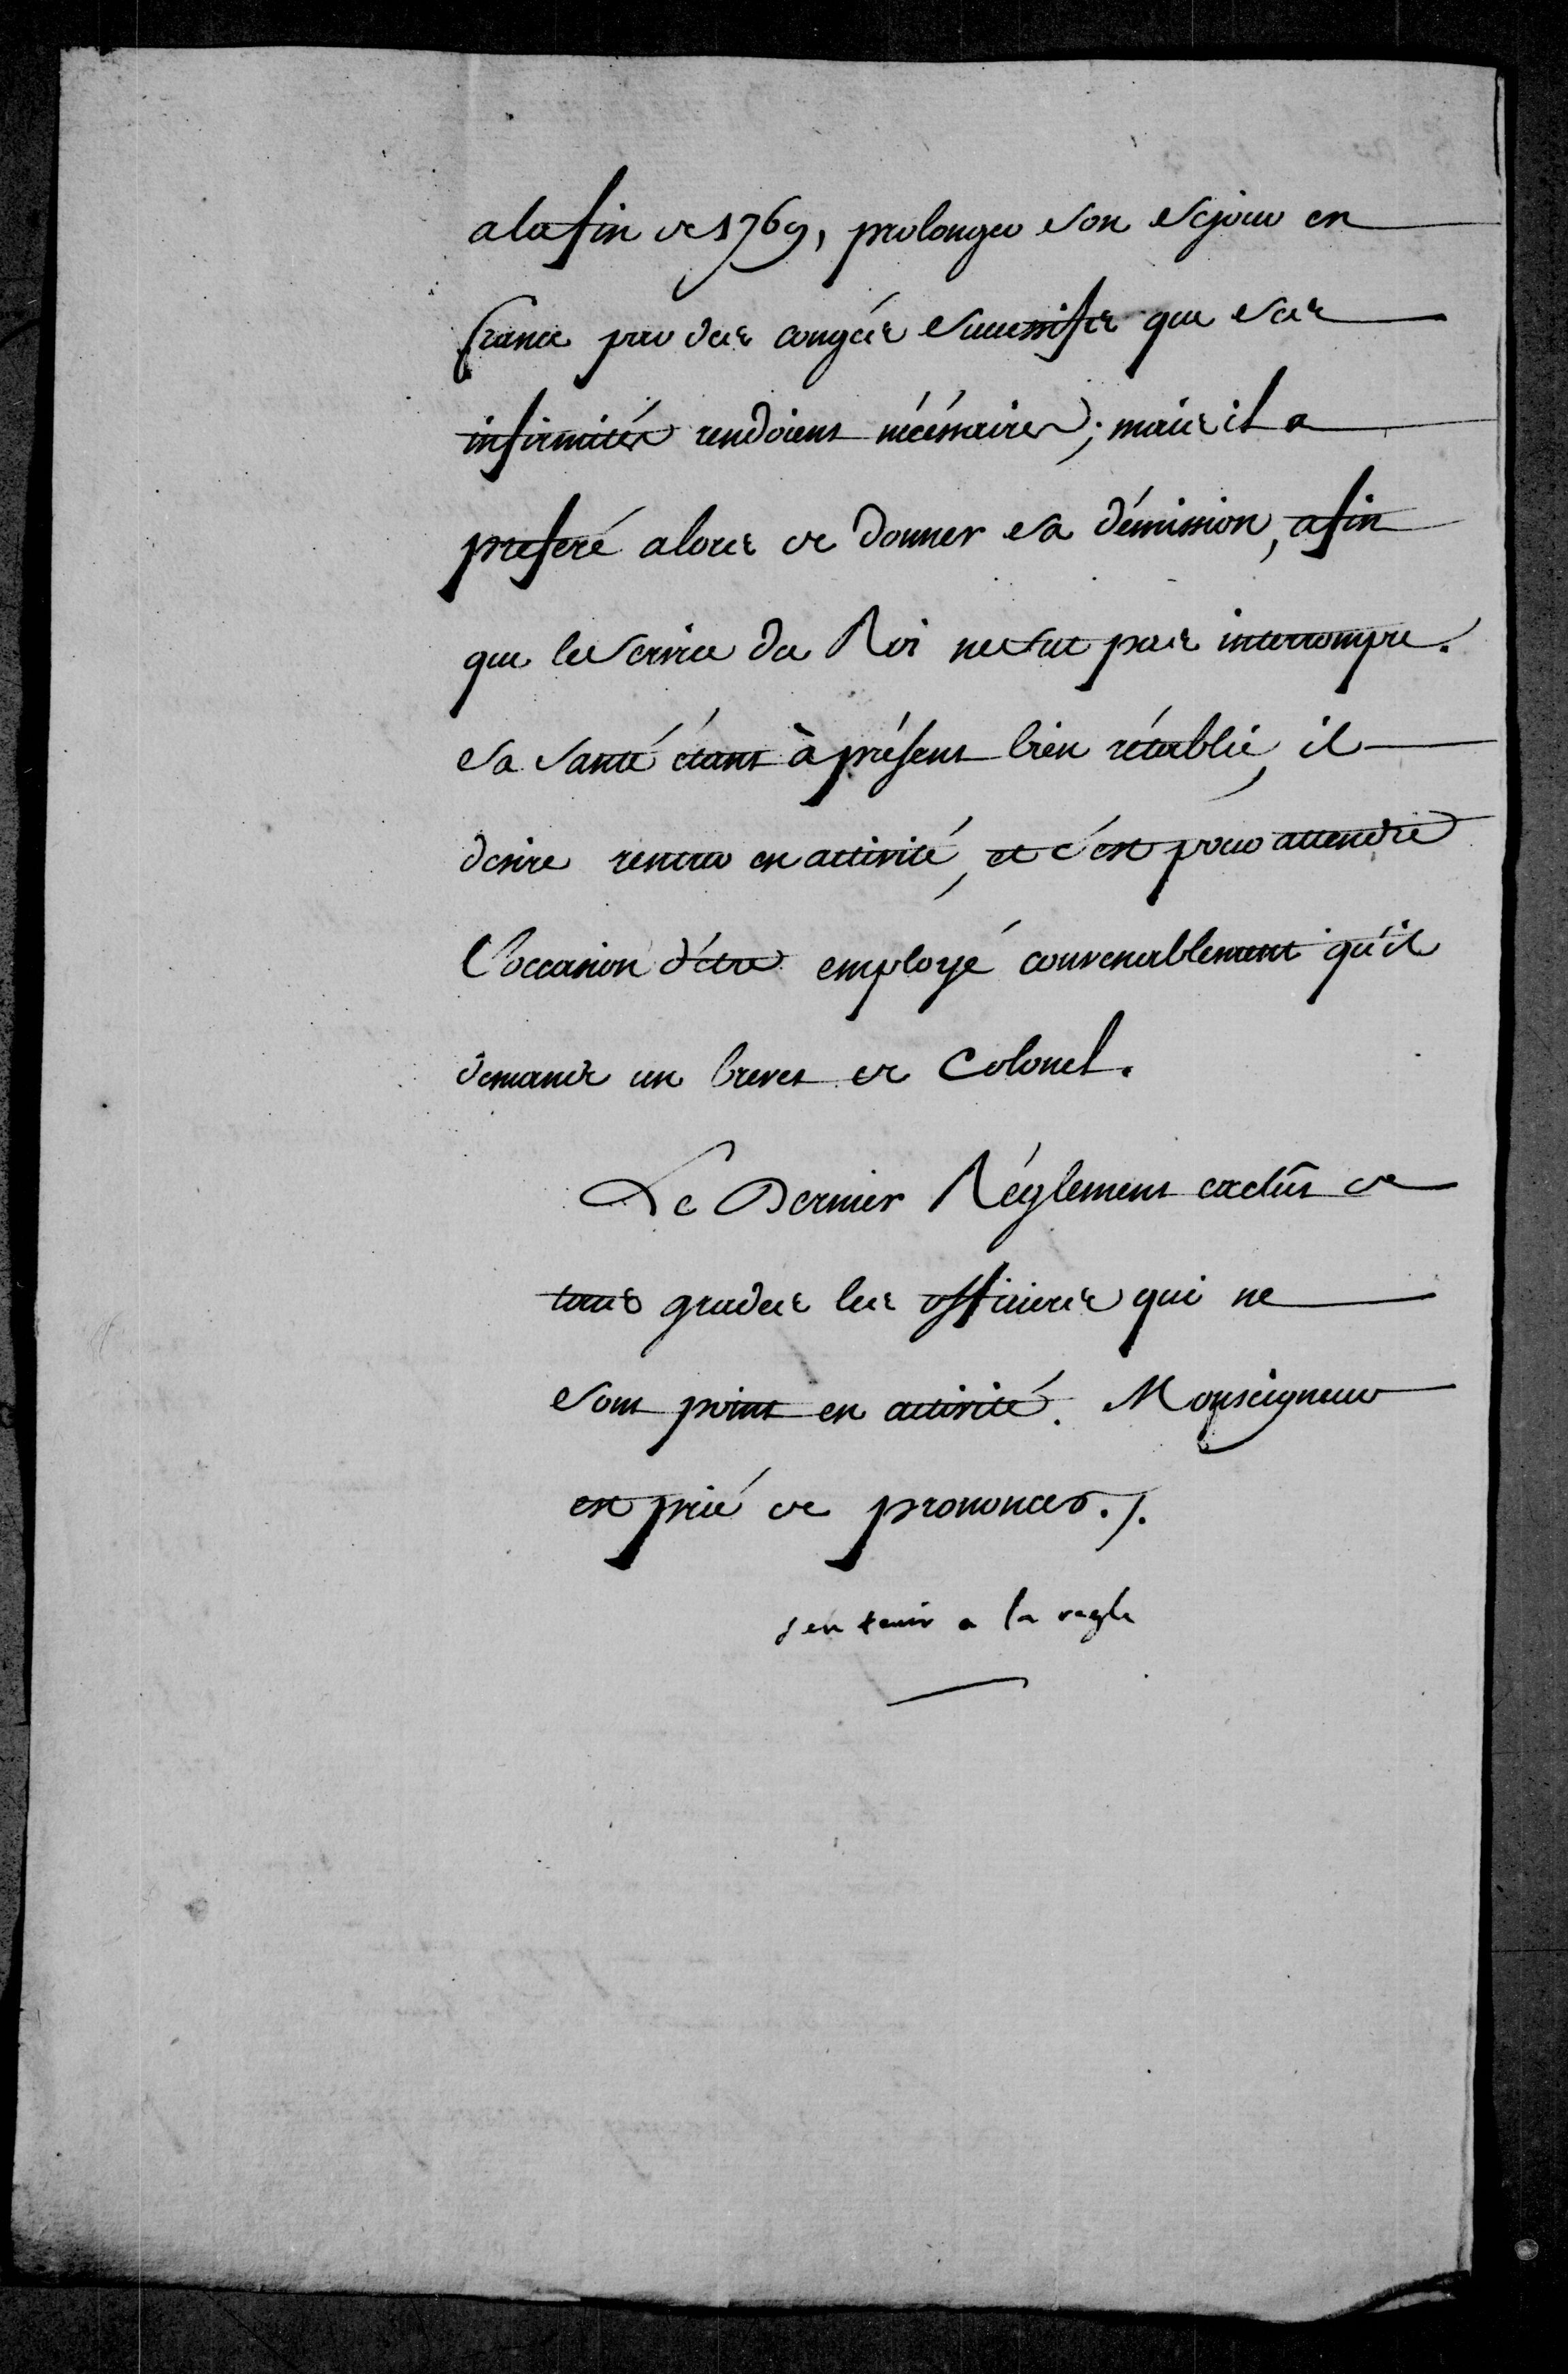 a la fin de 1769, prolonger son sejour en
france par des congés successifs que ses
infirmités rendoient nécéssaires; mais il a
preferé alors de donner sa démission, afin
que le service du Roi ne fut pas interrompu.
Sa santé étant à présent bien rétablie, il
desire rentrer en activité, et c'est pour attendre
l'occasion d'être employé convenablement qu'il
demande un brevet de Colonel.
Le Dernier Réglement exclut de
tous grades les officiers qui ne
sont point en activité. Monseigneur
est prié de prononcer./.
s'en tenir a la regle